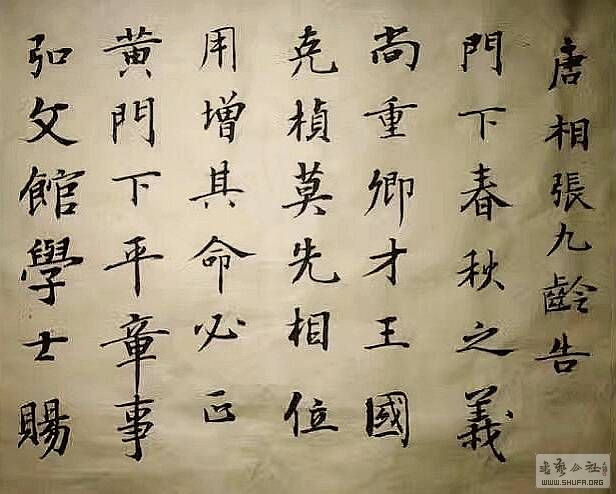 唐相張九齡告
門下春秋之義
尚重卿才王國
克楨莫先相位
用增其命必正
黃門下平章事
弘文館學士賜
WWW.SHUFA.ORG